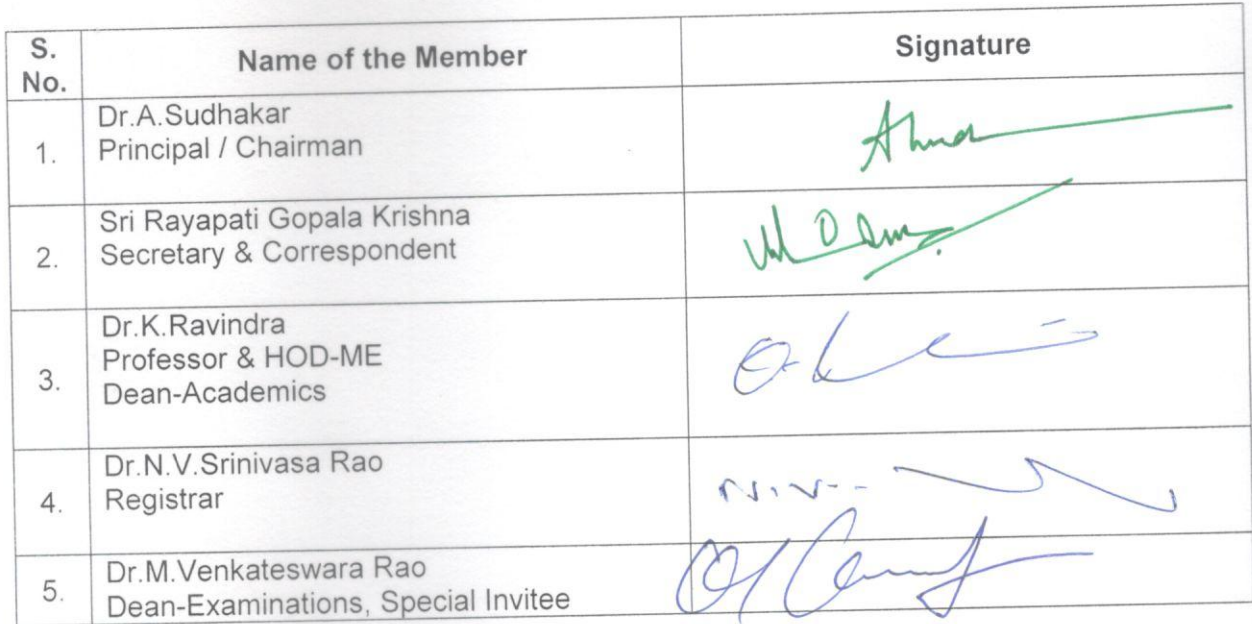 S. No.
Name of the Member
Signature
1.
Dr.A.Sudhakar
Principal / Chairman
2.
Sri Rayapati Gopala Krishna
Secretary & Correspondent
3.
Dr.K.Ravindra
Professor & HOD-ME
Dean-Academics
4.
Dr.N.V.Srinivasa Rao
Registrar
N.V.
5.
Dr.M.Venkateswara Rao
Dean-Examinations, Special Invitee